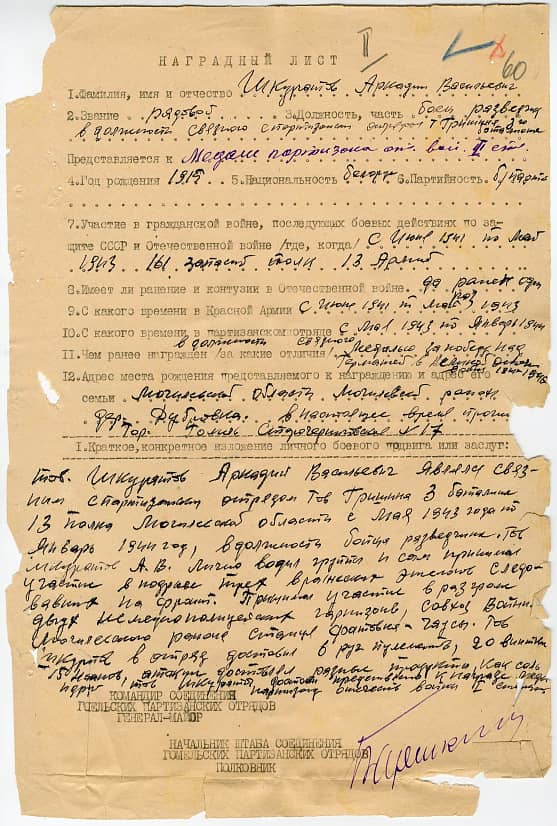 II
60
НАГРАДНЫЙ ЛИСТ
1.Фамилия, имя и отчество Шкуратов Аркадий Васильевич
2.Звание рядовой 3.Должность, часть боец разведчик
в должности связного с партизанским отрядом т Гришина 3го батальона
Представляется к Медали партизана от. вой. II ст.
4.Год рождения 1915 5.Национальность белорус 6.Партийность б/парт
7.Участие в гражданской войне, последующих боевых действиях по за-
щите СССР и Отечественной войне /где, когда/ с Июня 1941 по Май
1943 161 запасн полк 13 Армии
8.Имеет ли ранение и контузии в Отечественной войне. да ранен один
раз
9.С какого времени в Красной Армии с Июня 1941 по Май 1943
10.С какого времени в партизанском отряде с Мая 1943 по Январь 1944
в должности связного
11.Чем ранее награжден /за какие отличия/ Медалью за победу над
Германией в Великой Отеч.
войне 1941-1945
12.Адрес места рождения представляемого к награждению и адрес его
семьи Могилевской области Могилевский район
дер. Дубровка. в настоящее время прожи
Гор. Гомель 17
I.Краткое, конкретное изложение личного боевого подвига или заслуг:
тов. Шкуратов Аркадий Васильевич являлся связ-
ным с партизанским отрядом Тов Гришина 3 батальона
13 полка Могилевской области с Мая 1943 года по
Январь 1944 год, в должности бойца разведчика. Тов
Шкуратов А.В. Лично водил группы и сам принимал
участие в подрыве трех вражеских эшелонов следо-
вавших на фронт. Принимал участие в разгроме
двух немецко полицейских гарнизонов, совхоз
Могилевского района станция - Чаусы. Тов
Шкуратов в отряд доставил 6 руч пулеметов, 20 винтовок
15 наганов, а также доставлял разные продукты, как соль
тов Шкуратов достоин представления к награде медали
партизану Отечеств войны II степени
КОМАНДИР СОЕДИНЕНИЯ
ГОМЕЛЬСКИХ ПАРТИЗАНСКИХ ОТРЯДОВ
ГЕНЕРАЛ-МАЙОР
НАЧАЛЬНИК ШТАБА СОЕДИНЕНИЯ
ГОМЕЛЬСКИХ ПАРТИЗАНСКИХ ОТРЯДОВ
ПОЛКОВНИК